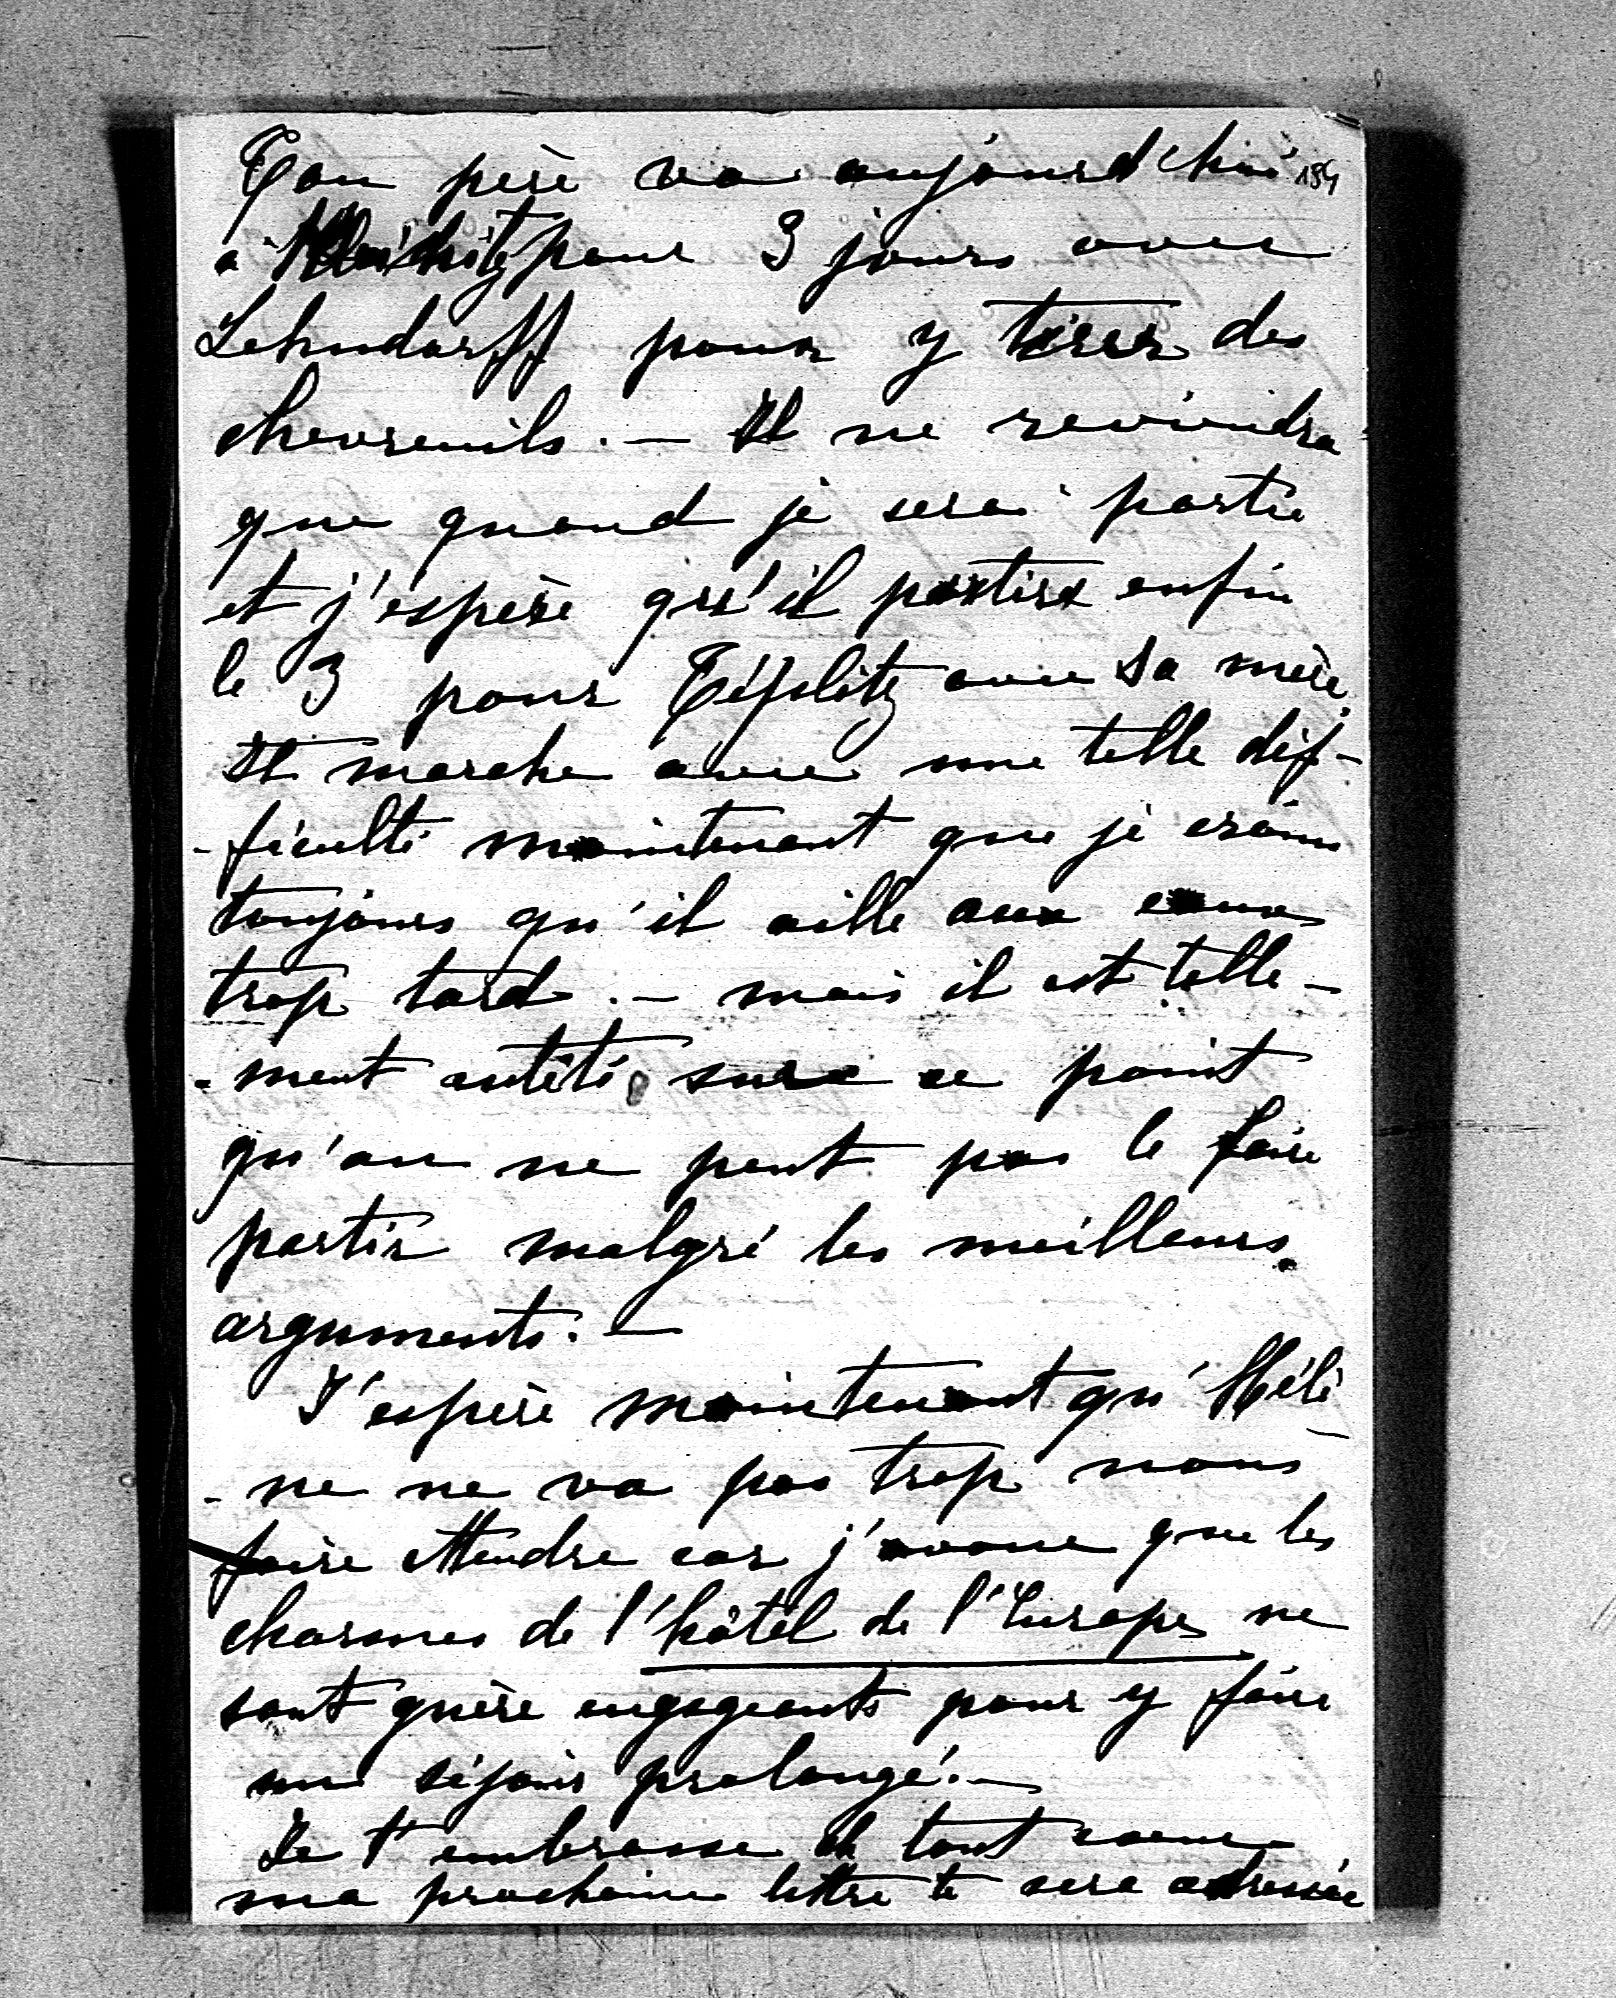 Ton père va aujourd'hui 184
à pour 3 jours avec
Lehndorff pour y tirer des
chevreuils. — Il ne reviendra
que quand je serai partie
et j'espère qu'il partira enfin
le 3 pour Téplitz avec sa mère.
Il marche avec une telle dif-
-ficulté maintenant que je crains
toujours qu'il aille aux eaux
trop tard. — mais il est telle-
-ment entêté sur ce point
qu'on ne peut pas le faire
partir malgré les meilleurs
arguments. —
J'espère maintenant qu'Hélè-
-ne ne va pas trop nous
faire attendre car j'avoue que les
charmes de l'hôtel de l'Europe ne
sont guère engageants pour y faire
un séjour prolongé. —
Je t'embrasse de tout coeur
ma prochaine lettre te sera adressée